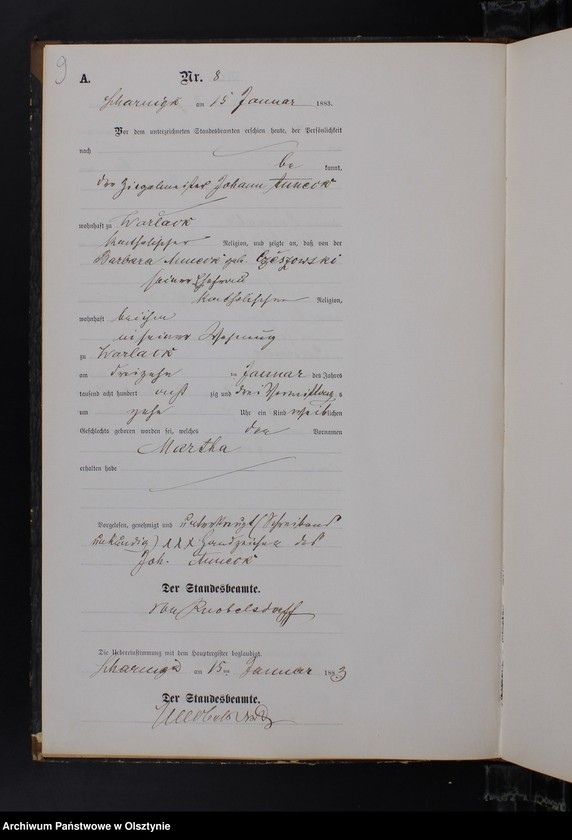 9
A.
Nr. 8
Scharnigk am 15 Januar 1883.
Vor dem unterzeichneten Standesbeamten erschien heute, der Persönlichkeit
nach
be kannt,
der Ziegelmeister Johann
wohnhaft zu Warlack
katholischer Religion, und zeigte an, daß von der
Barbara geb. Czeszowski
seiner Ehefrau
katholischen Religion,
wohnhaft bei ihm
in seiner Wohnung
zu Warlack
am dreizehn ten Januar des Jahres
tausend acht hundert acht zig und drei Vormittags
um zehn Uhr ein Kind weiblichen
Geschlechts geboren worden sei, welches den Vornamen
Martha
erhalten habe
Vorgelesen, genehmigt und unterkreuzt (Schreibens
unkundig) xxx Handzeichen des
Joh.
Der Standesbeamte.
von Knobelsdorff
Die Uebereinstimmung mit dem Hauptregister beglaubigt.
Scharnigk am 15ten Januar 1883
Der Standesbeamte.
Archiwum Państwowe w Olsztynie